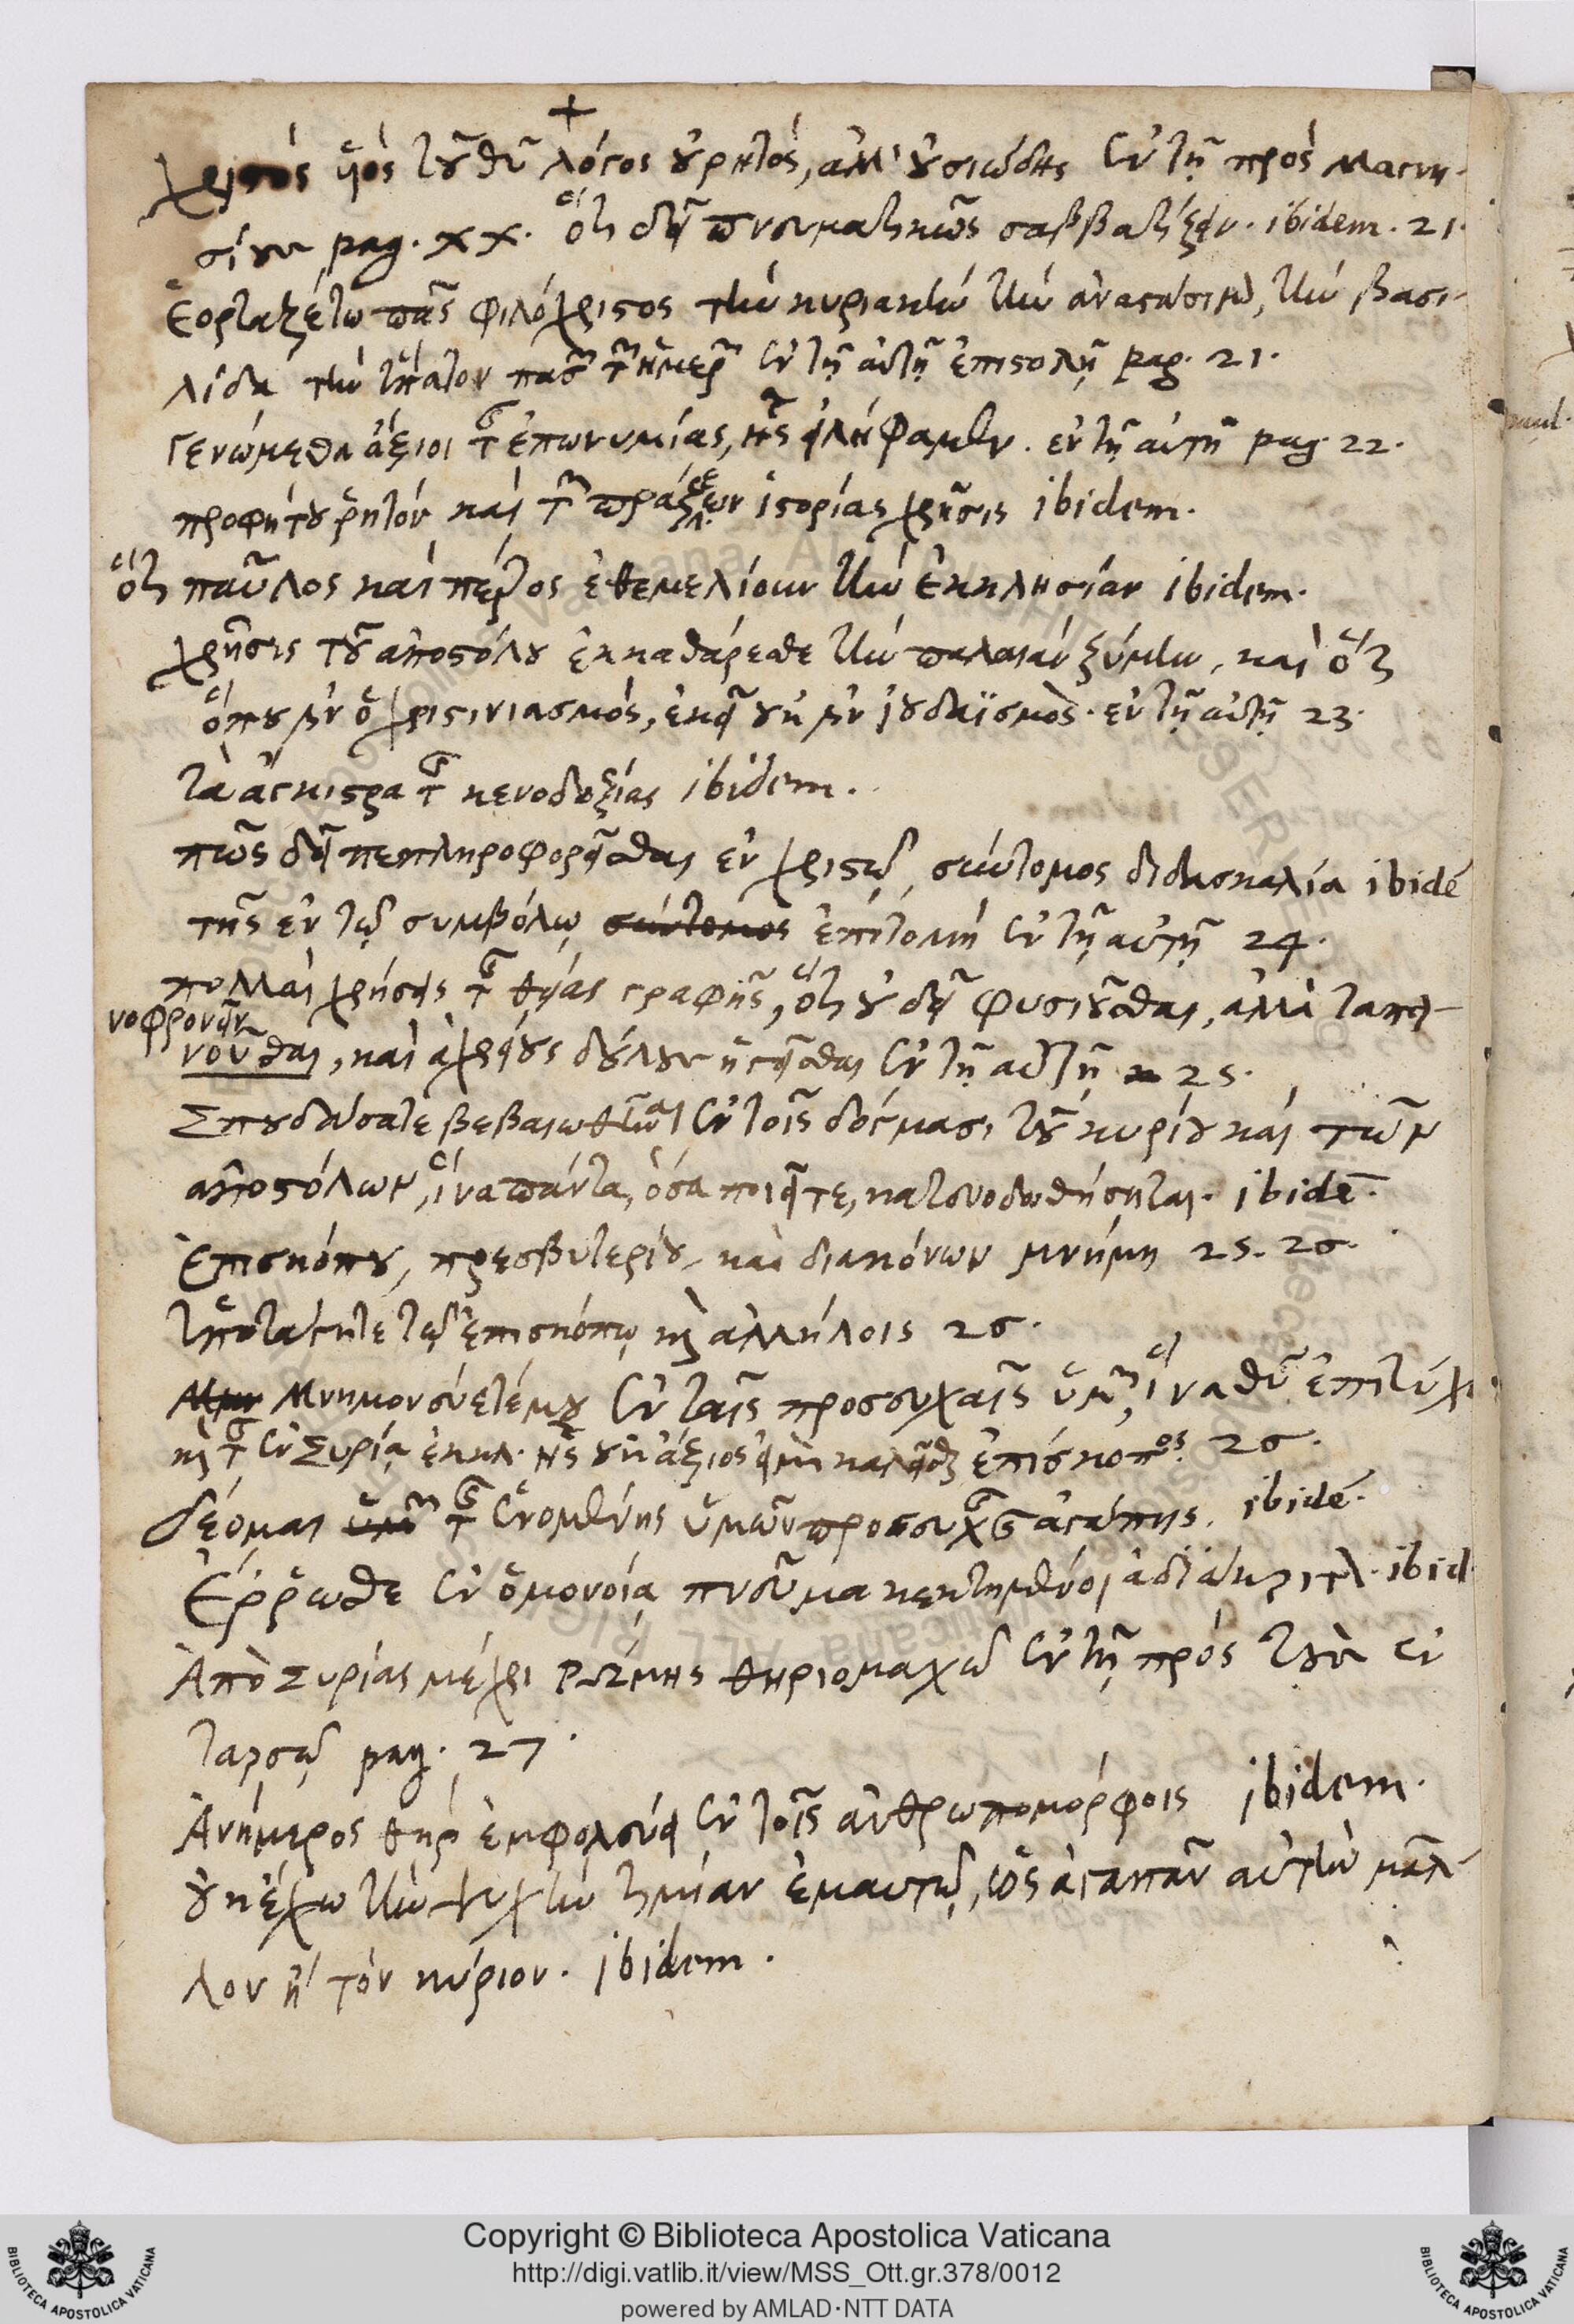 +
χριστὸς υἱὸς τοῦ θυ λόγος οὐ ρητὸς, ἀλλ' οὐσιώδης ἐν τῇ πρὸς Μαγνη-
σίους pag. xx. ὅτι δεῖ πνευματικῶς σαββατίζειν. ibidem. 21.
Ἑορταζέτω πᾶς φιλόχριστος τὴν κυριακὴν τὴν ἀναστάσιμον, τὴν βασι-
λίδα τὴν ὕπατον πασῶν τῶν ἡμερῶν ἐν τῇ αὐτῇ ἐπιστολῇ pag. 21.
Γενώμεθα ἄξιοι τῆς ἐπωνυμίας, ἧς εἰλήφαμεν. ἐν τῇ αὐτῇ pag. 22.
προφήτου ῥητὸν καὶ τῶν πράξεων ἱστορίας χρῆσις ibidem.
ὅτι παῦλος καὶ πέτρος ἐθεμελίουν τὴν ἐκκλησίαν ibidem.
χρῆσις τοῦ ἀποστόλου ἐκκαθάρεσθε τὴν παλαιὰν ζύμην, καὶ ὅτι
ὅπου ἦν ὁ χριστινιασμὸς, ἐκεῖ οὐκ ἦν ἰουδαϊσμὸς. ἐν τῇ αὐτῇ 23.
τὰ ἄγκιστρα τῆς κενοδοξίας ibidem.
πῶς δεῖ πεπληροφορεῖσθαι ἐν χριστῷ, σύντομος διδασκαλία ibidē
τῆς ἐν τῷ συμβόλῳ σύντομος ἐπίτομὴ ἐν τῇ αὐτῇ 24.
πολλαὶ χρήσεις τῆς θείας γραφῆς, ὅτι οὐ δεῖ φυσιοῦσθαι, ἀλλὰ ταπει-
νοφρονεῖν
νοῦσθαι, καὶ ἀχρείους δούλους ἡγεῖσθαι ἐν τῇ αὐτῇ 25.
Σπουδάσατε βεβαιωθῆναι ἐν τοῖς δόγμασι τοῦ κυρίου καὶ τῶν
ἀποστόλων, ἵνα πάντα, ὅσα ποιεῖτε, κατευοδωθήσηται. ibidē.
Ἐπισκόπου, πρεσβυτερίου, καὶ διακόνων μνήμη 25. 26.
Ὑποτάγητε τῷ ἐπισκόπῳ καὶ ἀλλήλοις 26.
Μνημονεύετέ μου ἐν ταῖς προσευχαῖς ὑμῶν, ἵνα θυ ἐπιτύχω
καὶ τῆς ἐν Συρίᾳ ἐκκλ. ἧς οὐκ ἄξιος εἰμὶ καλεῖσθαι ἐπίσκοπος. 26.
δέομαι ὑμῶν τῆς ἑνομένης ὑμῶν προσευχῆς ἀγάπης. ibidē.
Ἔρρωσθε ἐν ὁμονοίᾳ πνεῦμα κεκτημένοι ἀδιάκριτον. ibid.
Ἀπὸ Συρίας μέχρι Ρώμης θηριομαχῶ ἐν τῇ πρὸς τοὺς ἐν
ταρσῷ pag. 27.
Ἀνήμερος θὴρ ἐμφωλεύει ἐν τοῖς ἀνθρωπομόρφοις ibidem.
οὐκ ἔχω τὴν ψυχὴν τιμίαν ἐμαυτῷ, ὡς ἀγαπᾶν αὐτὴν μᾶλ-
λον ἢ τὸν κύριον. ibidem.
Copyright © Biblioteca Apostolica Vaticana
http://digi.vatlib.it/view/MSS_Ott.gr.378/0012
powered by AMLAD·NTT DATA
BIBLIOTECA APOSTOLICA VATICANA
BIBLIOTECA APOSTOLICA VATICANA